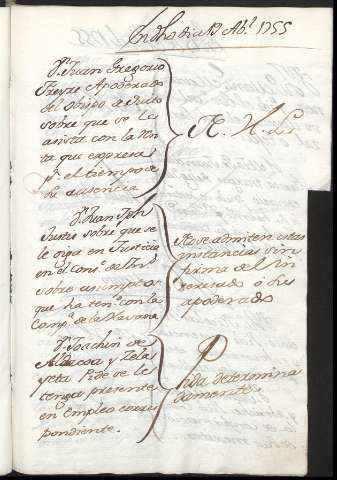 En dho dia 19 Abl. 1755
Dn. Juan Gregorio
Freyre Apoderado
del Obispo de Quito
sobre que se le
asista con la Ren
ta que expresa
pr. el tiempo de
su ausencia
Dn. Juan Jph
Justis sobre que se
le oiga en Justicia
en el Conso. de Inds.
sobre asumptos
que ha teno. con la
Compa. de la Havana
No se admiten estas
instancias sin
firma del in
teresado ó su
apoderado
Dn. Joachin de
Aldacoa y Zela
yeta Pide se le
tenga presente
en Empleo corres
pondiente.
Pida determina
damente